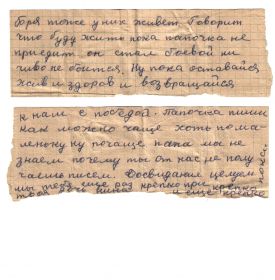 Боря тоже у них живет. Говорит
что буду жить пока папочка не
приедит он стал боевой ни
чиво не боится. Ну пока оставайся
жив и здоров и возвращайся
к нам с победой. Папочка пиши
как можно чаще хоть по ма
леньку ну почаще, папа мы не
знаем почему ты от нас не полу
чаешь писем. Досвидания целуем
мы тебя еще раз крепко при крепко
твоя дочь Нина и еще крепко
пока.